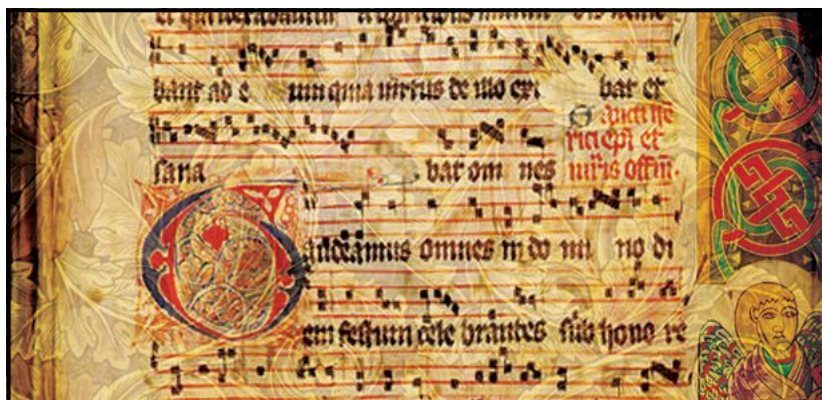 bant ad e um quia virtus de illo exi bat et
Sancti he
rici epi et
sana bat om nes mris offm.
Gaudeamus omnes in do mi no di
em festum cele brantes sub hono re